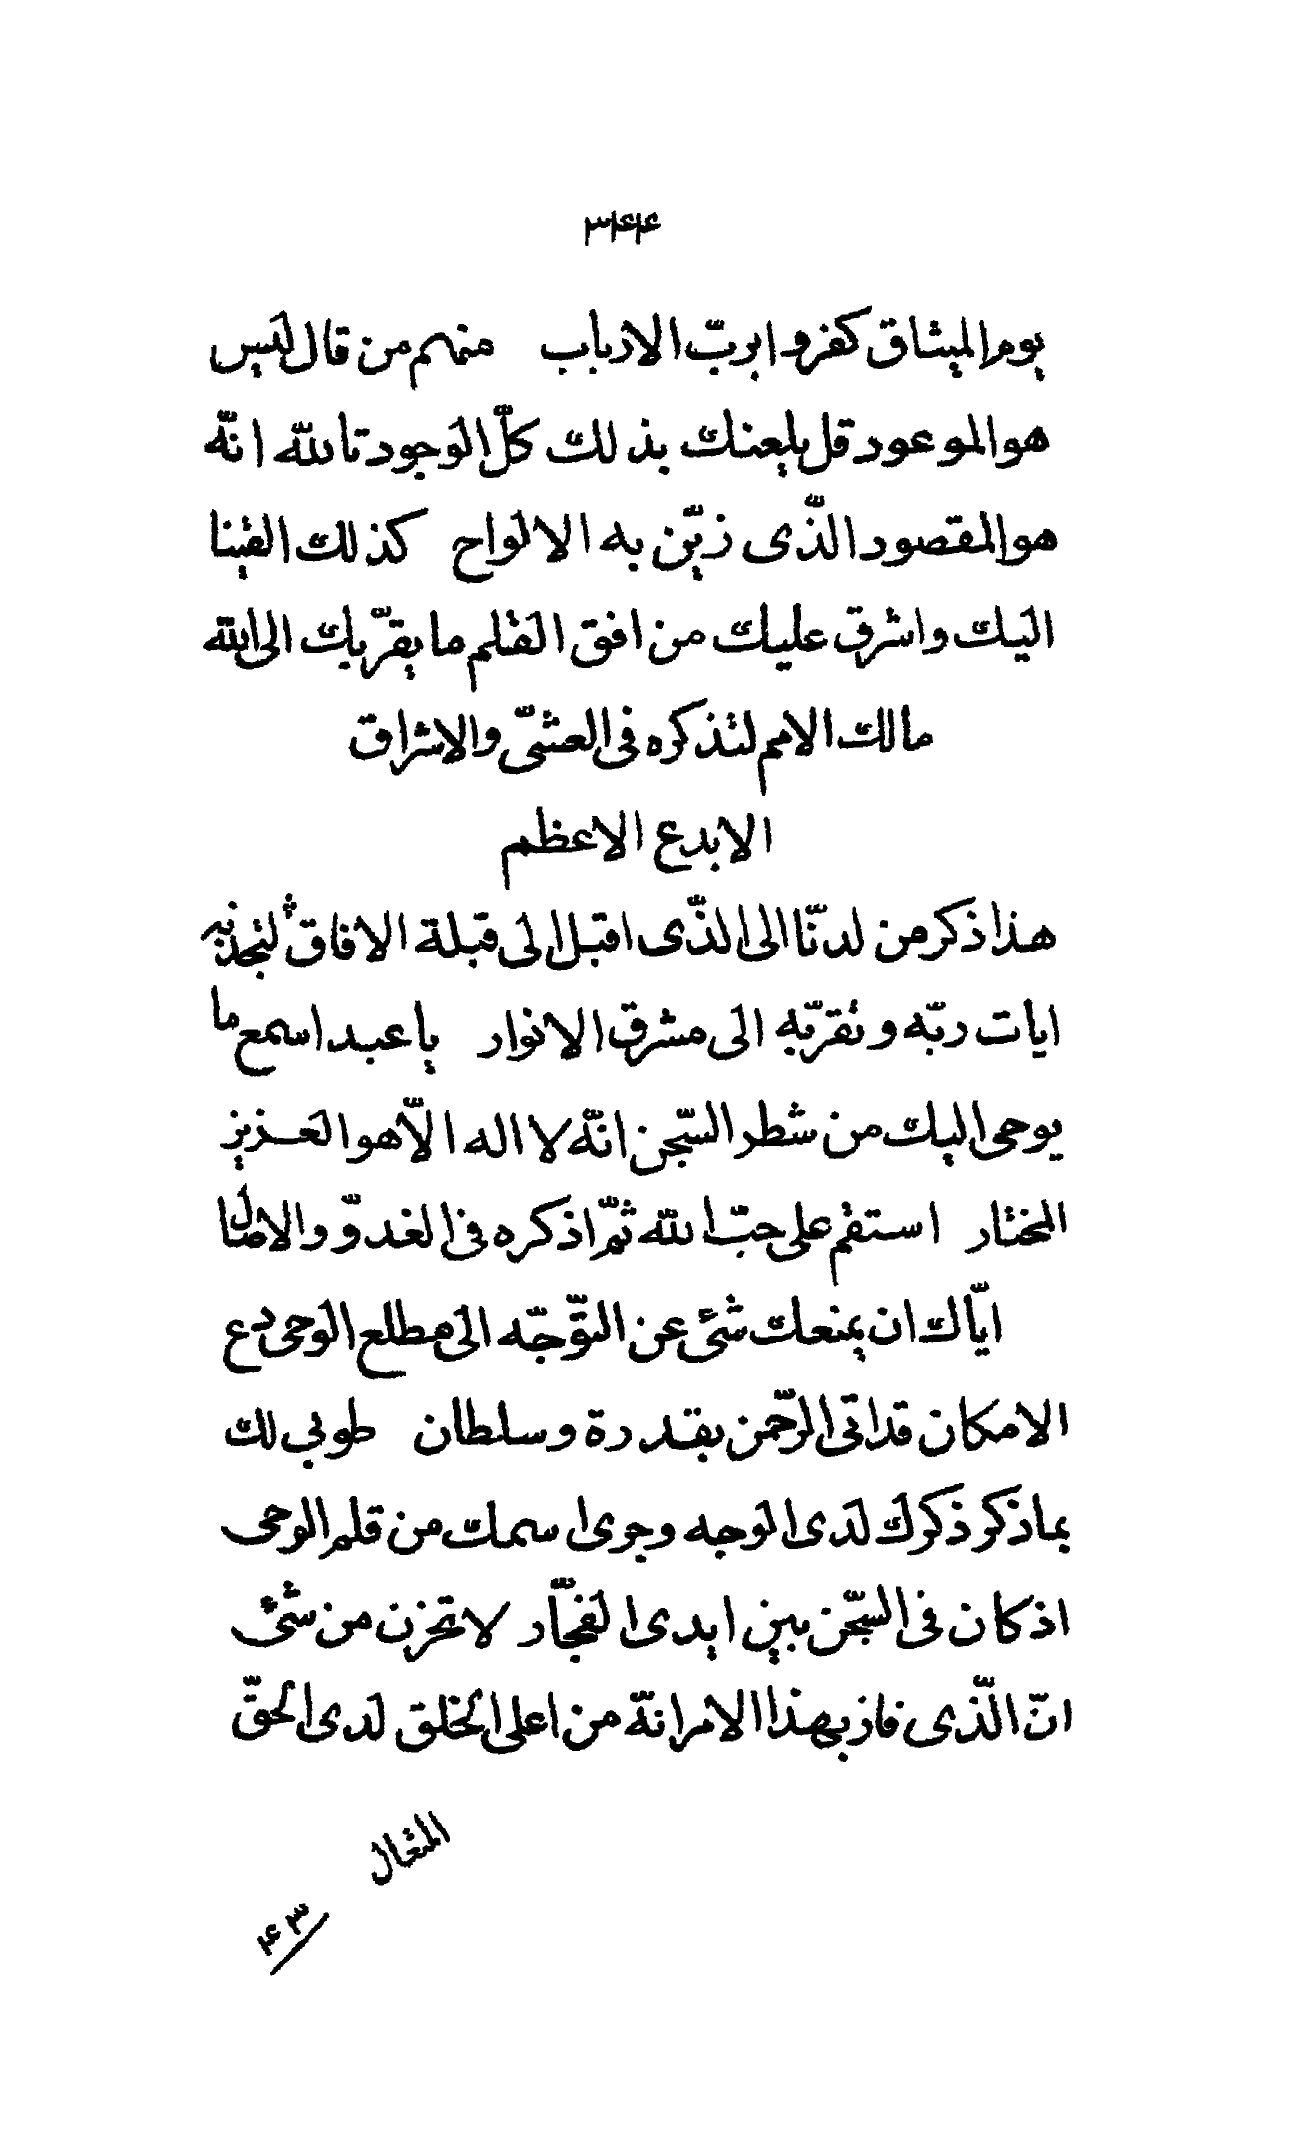 ۳۴۴
يوم الميثاق كفروا بربّ الارباب منهم من قال ليس
هو الموعود قل يلعنك بذلك كلّ الوجود تالله انّه
هو المقصود الّذى زيّن به الالواح كذلك القينا
اليك واشرق عليك من افق القلم ما يقرّبك الى الله
مالك الامم لتذكره فى العشىّ والاشراق
الابدع الاعظم
هذا ذكر من لدنّا الى الذّى اقبل الى قبلة الافاق لتجذبه
ايات ربّه و تقرّبه الى مشرق الانوار يا عبد اسمع ما
يوحى اليك من شطر السّجن انّه لا اله الّا هو العزيز
المختار استقم على حبّ الله ثمّ اذكره فى الغدوّ والاصال
ايّاك ان يمنعك شئ عن التّوجّه الى مطلع الوحى دع
الامكان قد اتى الرّحمن بقدرة و سلطان طوبى لك
بما ذكر ذكرك لدى الوجه وجرى اسمك من قلم الوحى
اذ كان فى السّجن بين ايدى الفجّار لا تحزن من شئ
انّ الّذى فاز بهذا الامر انّه من اعلى الخلق لدى الحقّ
المتعال
۴۳